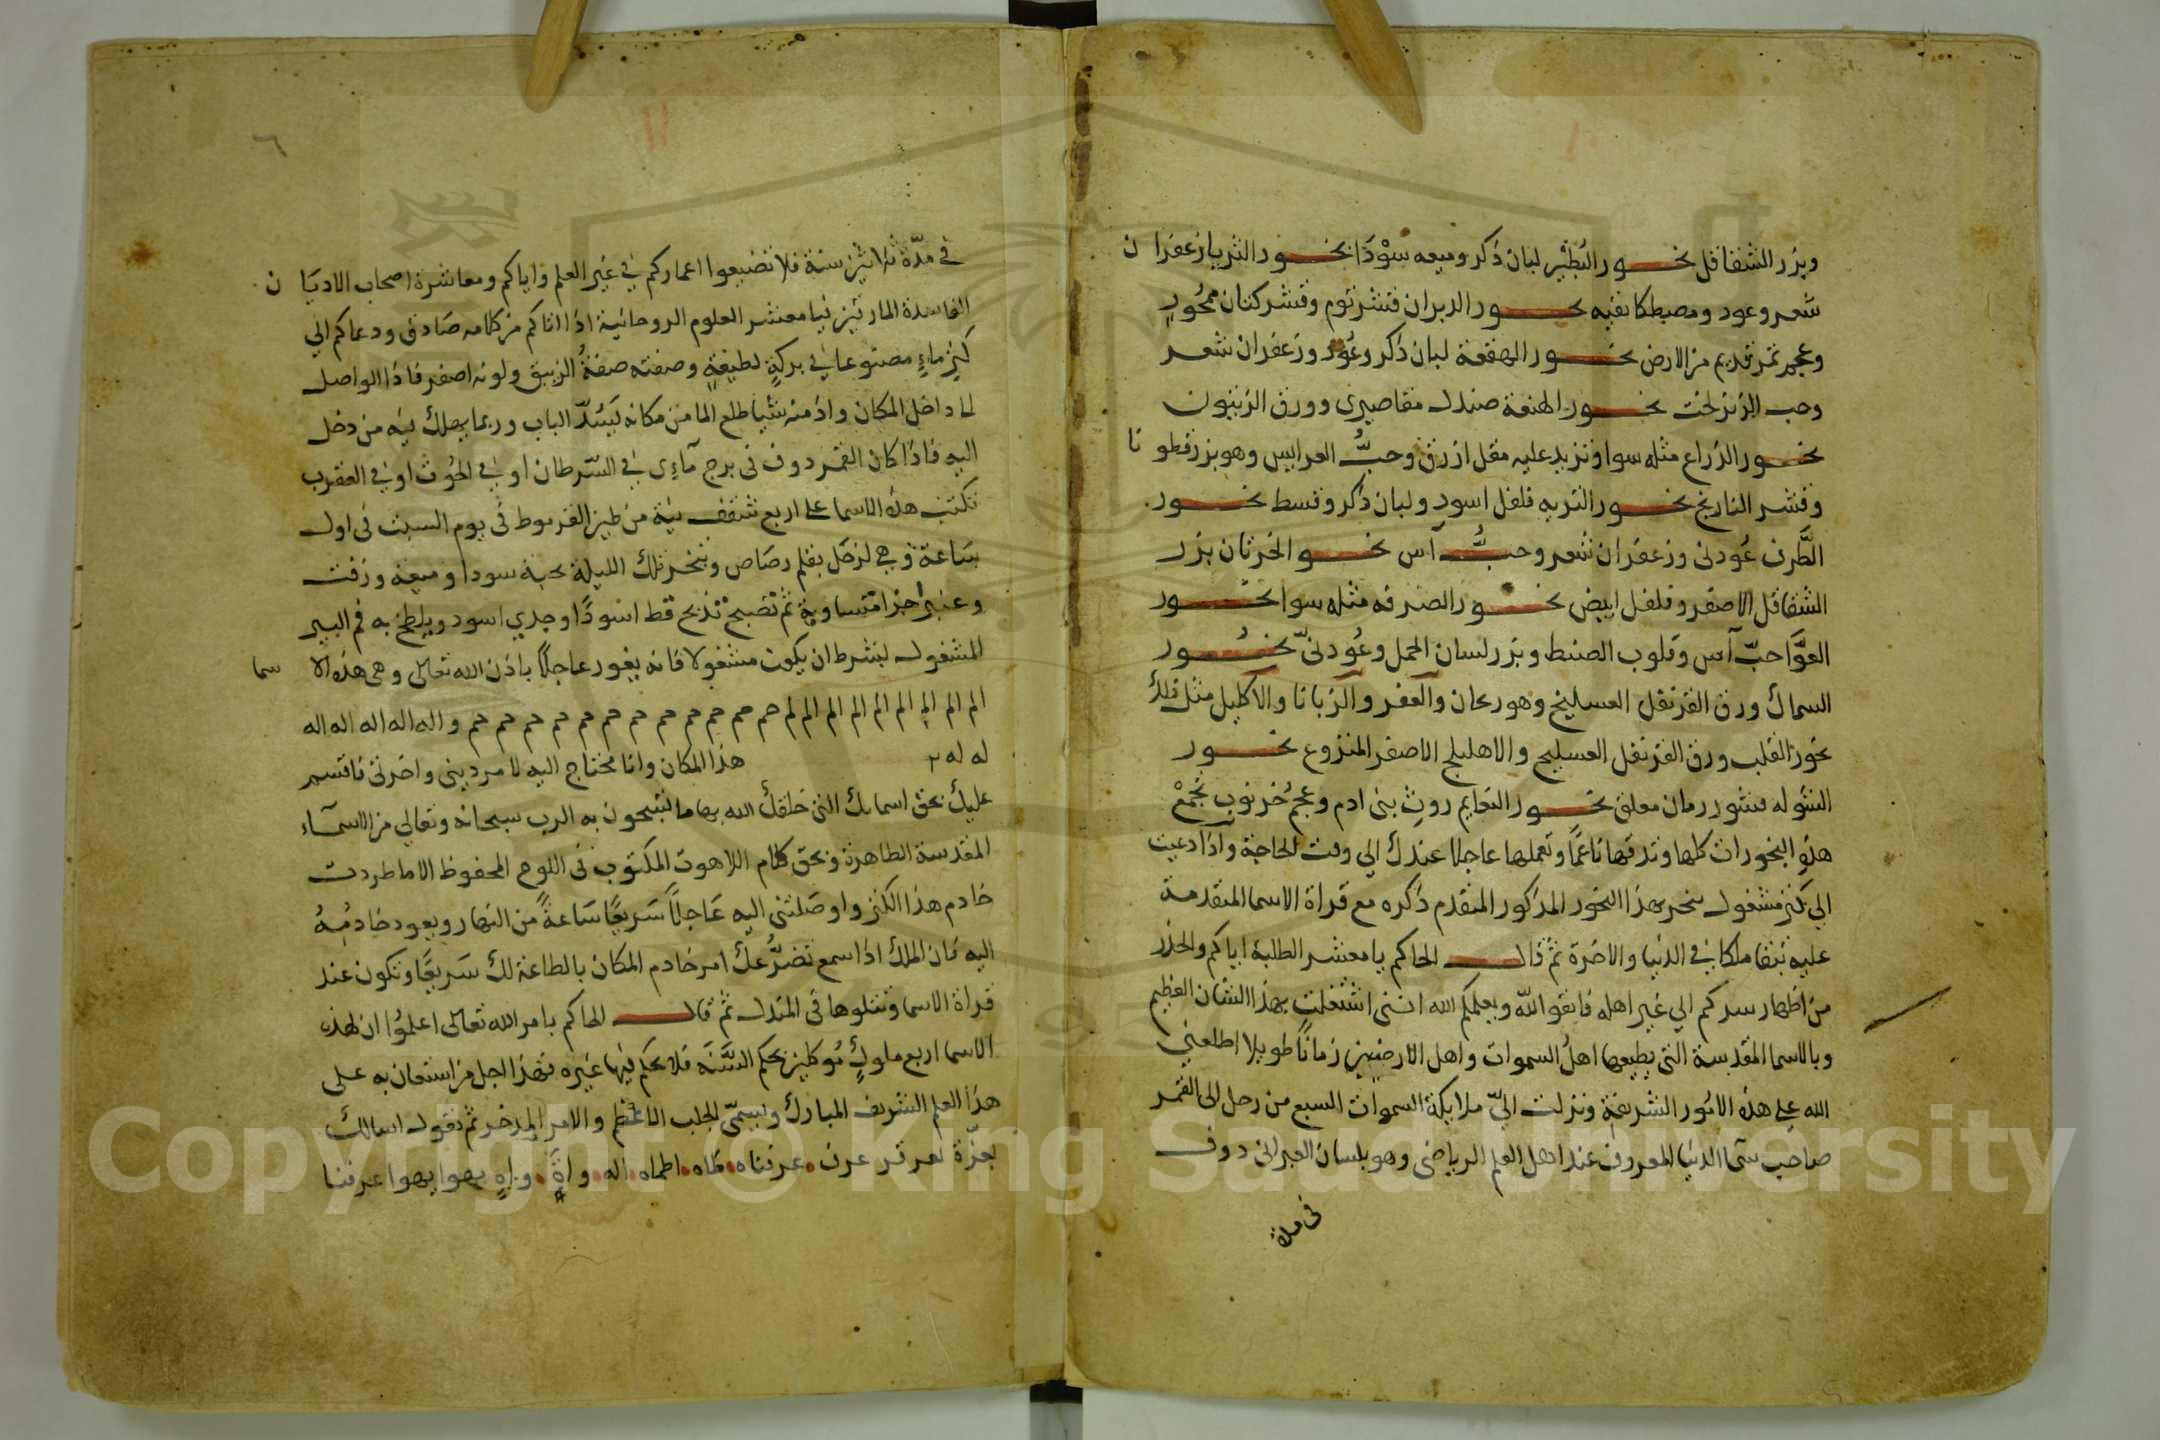 وبزر الشقاقل بخور البطين لبان ذكر وميعه سودا بخور الثريا زعفران
شعر وعود ومصطكا نقيه بخور الدبران قشر ثوم وقشر كتان محور
وعجم تمر قديم من الارض بخور الهقعة لبان ذكر وعود وزعفران شعر
وحب الزنزلخت بخور الهنعة صندل مقاصيرى وورق الزيتون
بخور الذراع مثله سوا وتزيد عليه مقل ازرق وحب العرايس وهو بزر قطونا
وقشر النارنج بخور النثره فلفل اسود ولبان ذكر وقسط بخور
الطرف عودني وزعفران شعر وحب آس بخو الخرثان بزر
الشقاقل الاصفر وفلفل ابيض بخور الصرفه مثله سوا بخور
العوا حب آس وقلوب الصنط وبزر لسان الحمل وعودني بخور
السماك ورق القرنفل العسليخ وهو ريحان والغفر والزبانا والاكليل مثل ذلك
بخور القلب ورق القرنفل العسليج والاهليلج الاصفر المنزوع بخور
الشوله قشور رمان معلق بخور النعايم روث بنى ادم وعجم خرنوب تجمع
هذه البخورات كلها وتدقها ناعما وتعملها عاجلا عندك الى وقت الحاجة واذا دعيت
الى كنز مشغول بخر بهذا البخور المذكور المتقدم ذكره مع قراة الاسما المتقدمة
عليه تبقا ملكا فى الدنيا والاخرة ثم قال الحاكم يا معشر الطلبة اياكم والحذر
من اظهار سركم الى غير اهله فاتقوا الله ويعلمكم الله اننى اشتغلت بهذا الشان العظيم
وبالاسما المقدسة التى يطيعها اهل السموات واهل الارضين زمانا طويلا اطلعنى
الله على هذه الامور الشريفة ونزلت الىّ ملايكة السموات السبع من زحل الى القمر
صاحب سما الدنيا المعروف عند اهل العلم الرياضى وهو بلسان العبرانى دوف
فى مدة
٦
١١
فى مدة ثلاثين سنة فلا تضيعوا اعماركم فى غير العلم واياكم ومعاشرة اصحاب الاديان
الفاسدة المارقين فيا معشر العلوم الروحانية اذا اتاكم من كلامه صادق ودعاكم الى
كنز ماء مصنوعا فى بركة لطيفة وصفته صفة الزيبق ولونه اصفر فاذا الواصل
لما داخل المكان واخذ منه شيا طلع الما من مكانه ليسد الباب وربما يهلك فيه من دخل
اليه فاذا كان القمر دوف فى برج مآءى فى السرطان او فى الحوت او فى العقرب
تكتب هذه الاسما على اربع شقف نية من طين القرموط فى يوم السبت فى اول
ساعة وهى لزحل بقلم رصاص وتبخر تلك الليلة بحبة سودا وميعة وزفت
وعنبر اجزا متساوية ثم تصبح تذبح قط اسودا وجدي اسود ويلطخ به فم البير
المشغول بشرط ان يكون مشغولا فانه يغور عاجلا باذن الله تعالى وهى هذه الاسما
الم الم الم الم الم الم الم الم لم حم حم حم حم حم حم حم حم حم حم حم حم واله اله اله اله اله
له له ٢ هذا المكان وانا محتاج اليه لامر دينى واخرتى فاقسم
عليك بحق اسمايك التى خلقك الله بها ما تسبحون به الرب سبحانه وتعالى من الاسمآء
المقدسة الطاهرة وبحق كلام اللاهوت المكتوب فى اللوح المحفوظ الا ما طردت
خادم هذا الكنز واوصلتنى اليه عاجلاً سريعًا ساعةً من النهار ويعود خادمه
اليه فان الملك اذا سمع تضرعك امر خادم المكان بالطاعة لك سريعًا وتكون عند
قراة الاسما وتتلوها فى المندل ثم قال الحاكم بامر الله تعالى اعلموا ان لهذه
الاسما اربع ملوك موكلين بحكم السنة فلا يحكم فيها غيره فهذا اجل من استعان به على
هذا العلم الشريف المبارك ويسمى الجلب الاعظم والامر المدخر ثم تقول اسالك
بعزة عرفناه اطماه اله واه واه يهوا يهوا عرفنا
Copyright © King Saud University